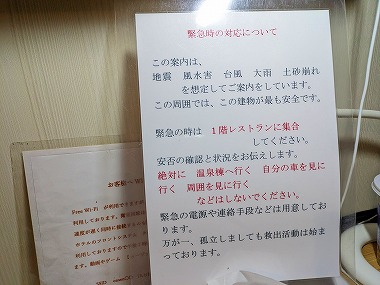 緊急時の対応について
この案内は、
地震 風水害 台風 大雨 土砂崩れ
を想定してご案内をしています。
この周囲では、この建物が最も安全です。
緊急の時は 1階レストランに集合
してください。
安否の確認と状況をお伝えします。
絶対に 温泉棟へ行く 自分の車を見に
行く 周囲を見に行く
などはしないでください。
緊急の電源や連絡手段などは用意しており
ます。
万が一、孤立しましても救出活動は始ま
っております。
お客様へ
Free Wi-Fi
利用しております。
速度が遅く同時に接続
ホテルのフロントシステム
利用しております
す。動画やゲーム